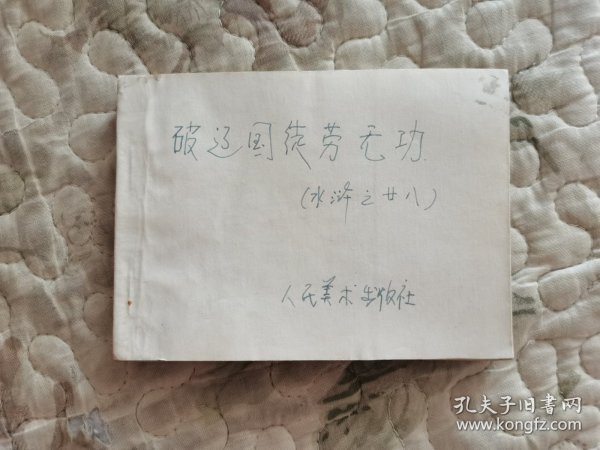 破辽国徒劳无功
(水浒之廿八)
人民美术出版社
孔夫子旧書网
www.kongfz.com